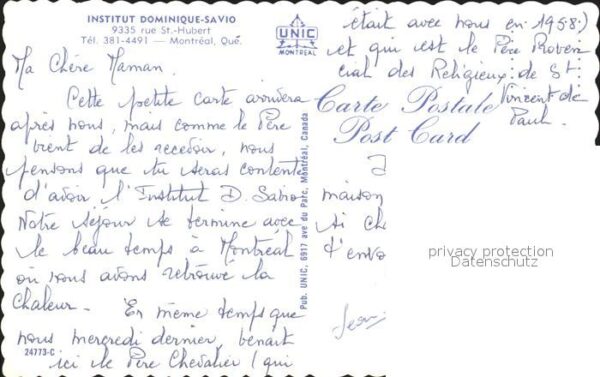 INSTITUT DOMINIQUE-SAVIO
9335 rue St.-Hubert
Tél. 381-4491 — Montréal, Qué.
UNIC
MONTREAL
Ma Chère Maman.
Cette petite carte arrivera
après nous, mais comme le Père
vient de les recevoir, nous
pensons que tu seras contente
d'avoir l'Institut D. Savio
Notre séjour se termine avec
le beau temps à Montréal
où nous avons retrouvé la
chaleur. En même temps que
nous mercredi dernier, venait
ici le Père Chevalier (qui
24773-C
Pub. UNIC, 6917 ave du Parc, Montréal, Canada
était avec nous en 1958)
et qui est le Père Provin
cial des Religieux de St
Vincent de
Paul.
Carte Postale
Post Card
maison
si ch
t'envo
Jean
privacy protection
Datenschutz